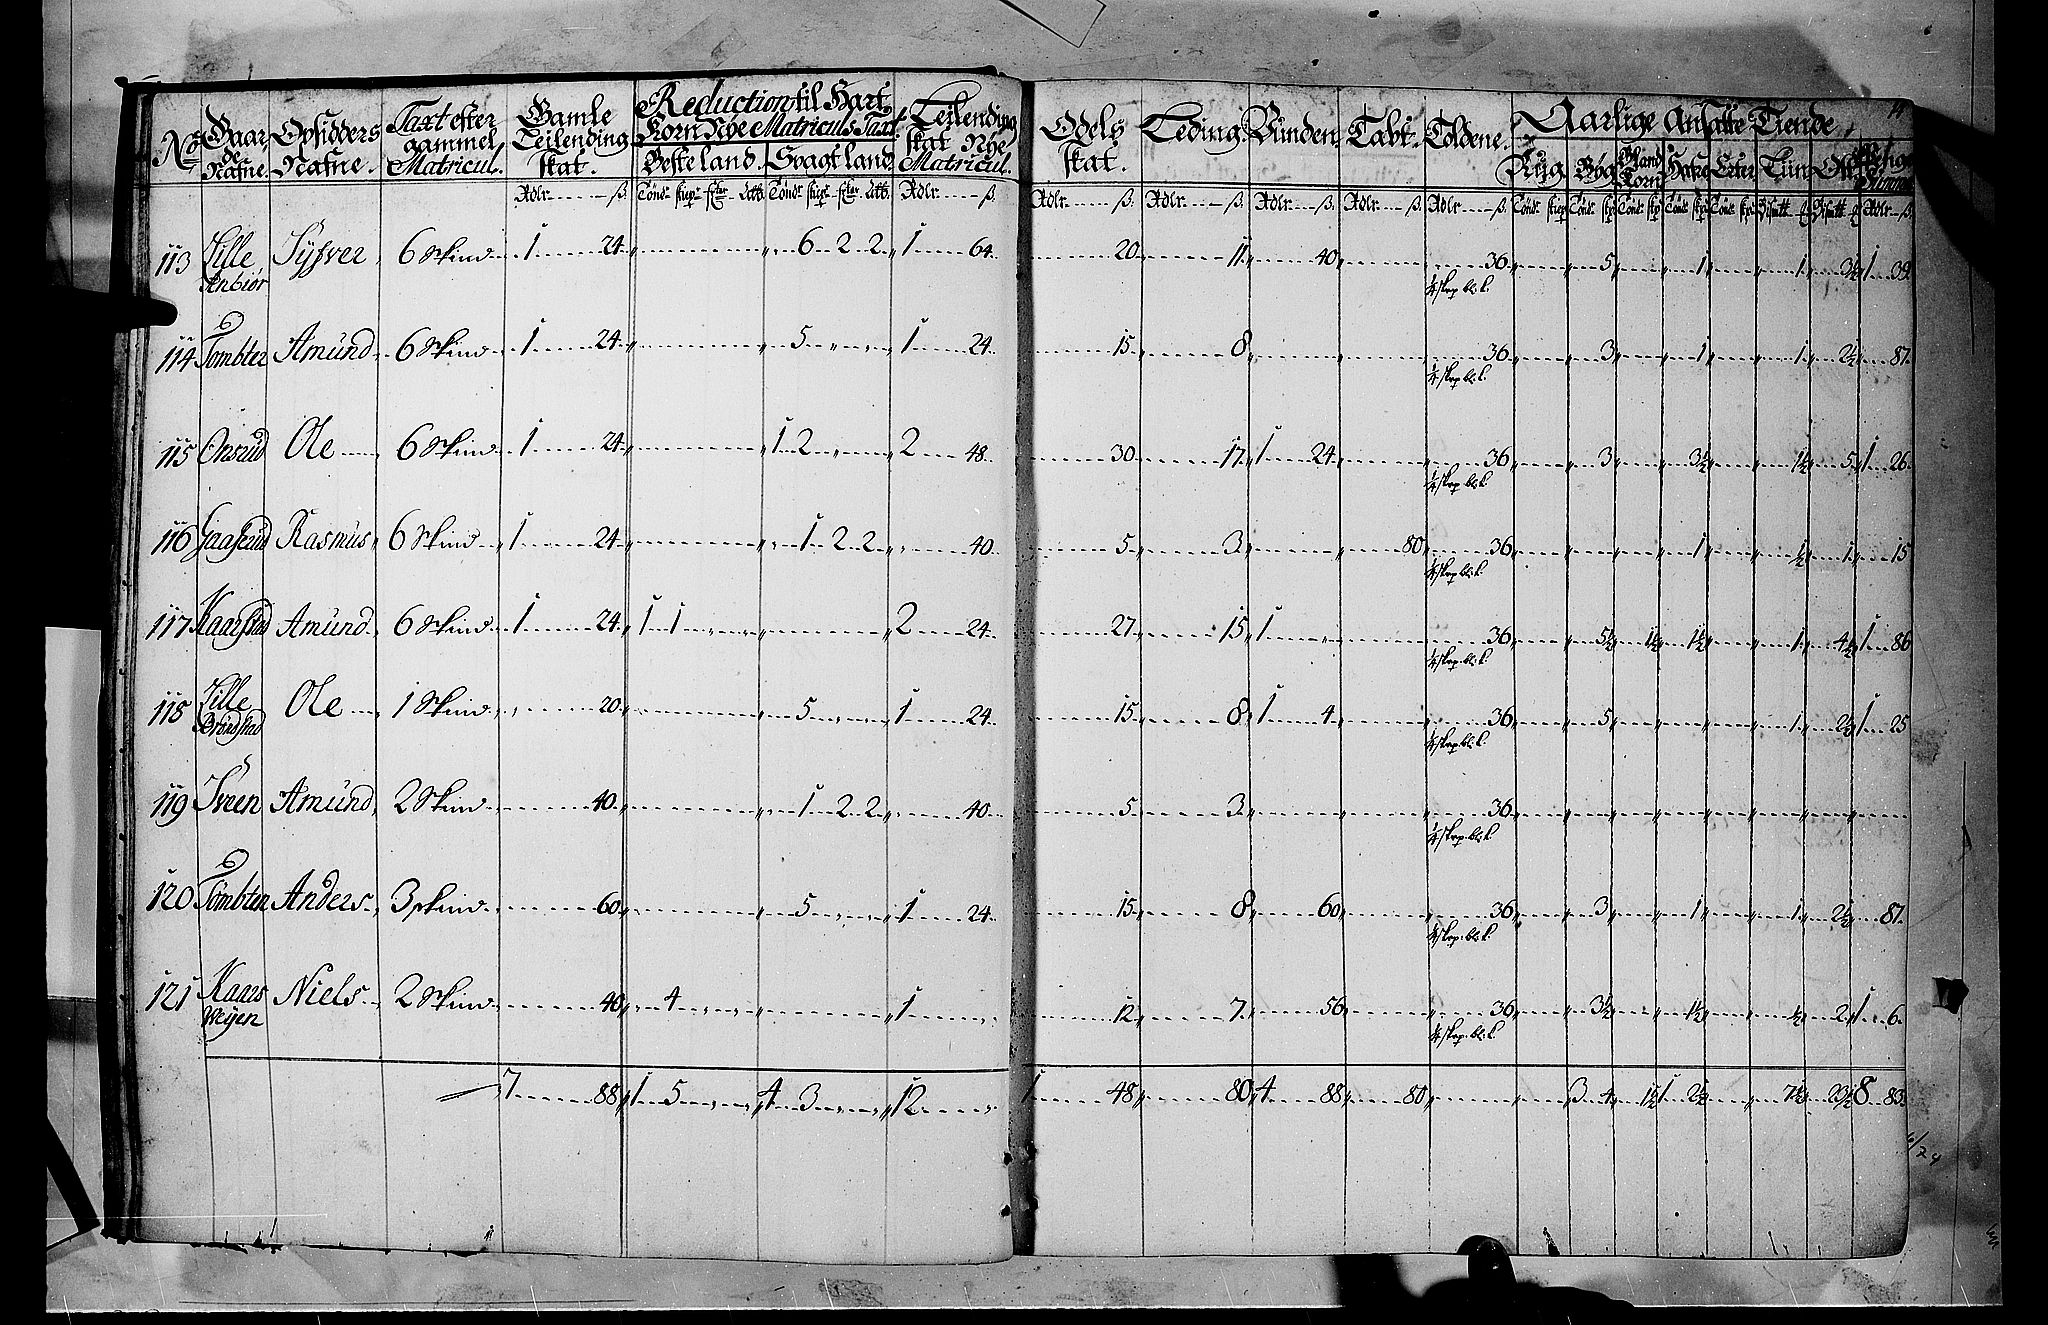 14
No Gaardenafne. Opsidders Nafne. Taxt efter gammel Matricul. Gamle Leilending skat. Reduction til Hart Korn Nye Matriculs Taxt. Leilending skat Nye Matricul. Odels skat. Leding. Vunden. Tabt. Toldene. Aarlige Ansatte Tiende
Beste land. Svagt land. Rug Byg Bland Korn Hafre Erter Liin Ost
Rdlr. ß. Rdlr. ß. Rdlr. ß. Rdlr. ß. Rdlr. ß. Rdlr. ß. Rdlr. ß.
113 Lille Anbiør Syfver 6 Skind 1 24 6 2 2 1 64 20 11 40 36 5 1 1 3½ 1 39
¼ skep bl. k.
114 Tombter Amund 6 Skind 1 24 5 1 24 15 8 36 3 1 1 2½ 87
¼ skep bl. k.
115 Onsrud Ole 6 Skind 1 24 1 2 2 48 30 17 1 24 36 3 3½ 1½ 5 1 26
¼ skep bl. k.
116 Gaasrud Rasmus 6 Skind 1 24 1 2 2 40 5 3 80 36 1 ½ 1 15
¼ skep bl. k.
117 Kaarstad Amund 6 Skind 1 24 1 1 2 24 27 15 1 36 5½ 1½ 1½ 1 4½ 1 86
¼ skep bl. k.
118 Lille Brøndstad Ole 1 Skind 20 5 1 24 15 8 1 4 36 5 1 2½ 1 25
¼ skep bl. k.
119 Sveen Amund 2 Skind 40 1 2 2 40 5 3 36
¼ skep bl. k.
120 Tombten Anders 3 skind 60 5 1 24 15 8 60 36 3 1 1 2½ 87
¼ skep bl. k.
121 Kaars Weyen Niels 2 Skind 40 4 1 12 7 56 36 3½ 1½ ½ 2 1 6
¼ skep bl. k.
7 88 1 5 4 3 12 1 48 80 4 88 80 3 4 1½ 1 2½ 7½ 23½ 8 83